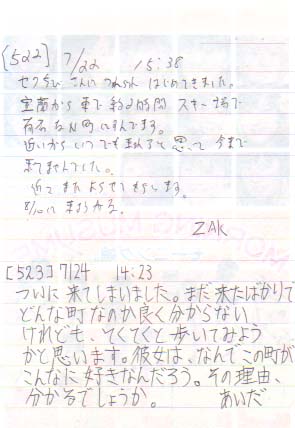 [522] 7/22 15:38
はじめてきました。
から 車で 約2時間 スキー場で
有名なN町にすんでます。
近いから いつでも 来れると 思って 今まで
来てませんでした。
近々またよらせてもらいます。
8/10に
ZAK
[523] 7/24 14:23
ついに来てしまいました。まだ来たばかりで
どんな町なのか良く分からない
けれども、てくてくと歩いてみよう
かと思います。彼女は、なんでこの町が
こんなに好きなんだろう。その理由、
分かるでしょうか。 あいだ
MORNING MUSUME